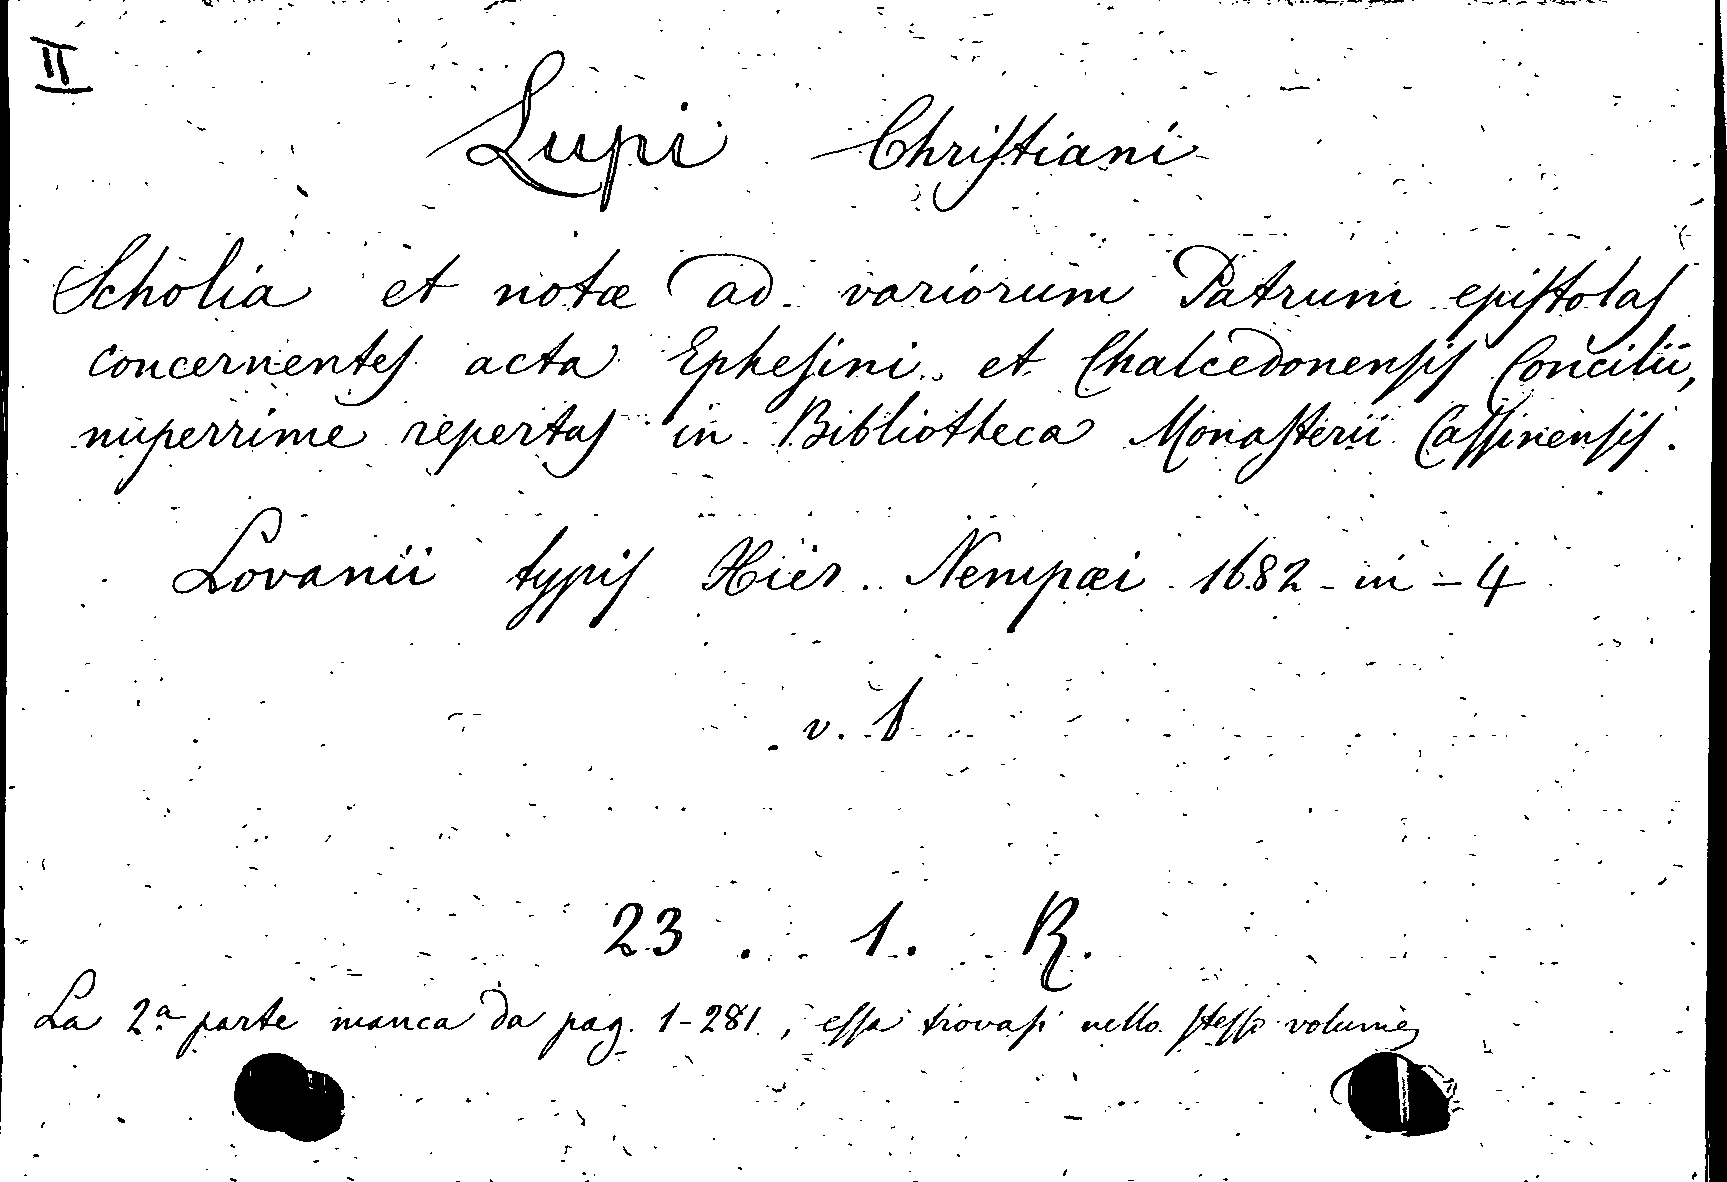 II
Lupi Chriſtiani
Scholia et notæ ad variorum Patrum epiſtolaſ
concernenteſ acta Epheſini et Chalcedonenſiſ Concilii,
nuperrime repertaſ in Bibliotheca Monaſterii Caſſinenſiſ.
Lovanii typiſ Hier. Nempæi 1682 - in - 4
v. 1
23 . 1. R.
La 2ª parte manca da pag. 1-281, eſſa trovaſi nello ſteſſo volume